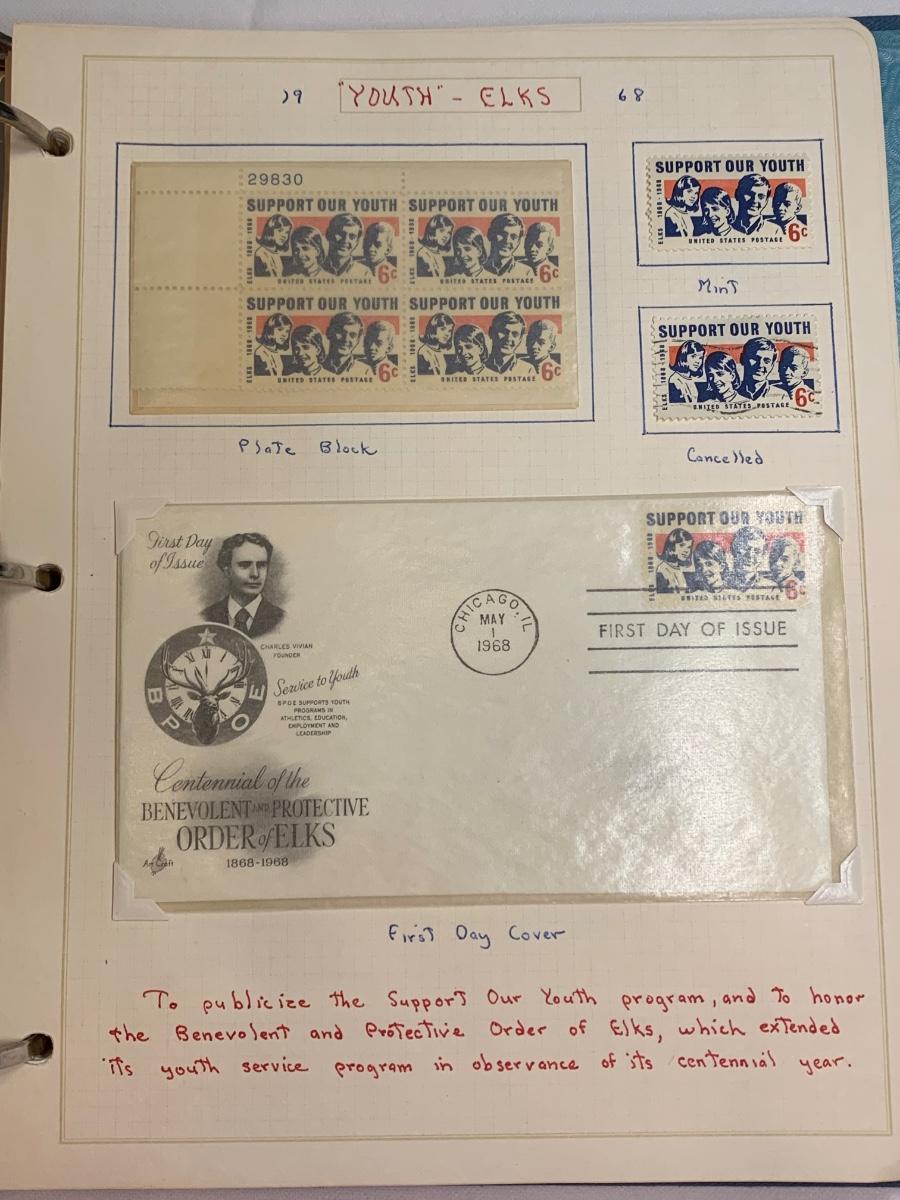 19 "YOUTH" - ELKS 68
29830
SUPPORT OUR YOUTH
ELKS 1868-1968
UNITED STATES POSTAGE 6c
SUPPORT OUR YOUTH
ELKS 1868-1968
UNITED STATES POSTAGE 6c
SUPPORT OUR YOUTH
ELKS 1868-1968
UNITED STATES POSTAGE 6c
SUPPORT OUR YOUTH
ELKS 1868-1968
UNITED STATES POSTAGE 6c
Plate Block
SUPPORT OUR YOUTH
ELKS 1868-1968
UNITED STATES POSTAGE 6c
Mint
SUPPORT OUR YOUTH
ELKS 1868-1968
UNITED STATES POSTAGE 6c
Cancelled
First Day
of Issue
CHARLES VIVIAN
FOUNDER
BPOE
Service to Youth
BPOE SUPPORTS YOUTH
PROGRAMS IN
ATHLETICS, EDUCATION,
EMPLOYMENT AND
LEADERSHIP
Centennial of the
BENEVOLENT AND PROTECTIVE
ORDER of ELKS
1868-1968
ArtCraft
CHICAGO, IL
MAY
1
1968
SUPPORT OUR YOUTH
ELKS 1868-1968
UNITED STATES POSTAGE 6c
FIRST DAY OF ISSUE
First Day Cover
To publicize the Support Our Youth program, and to honor
the Benevolent and Protective Order of Elks, which extended
its youth service program in observance of its centennial year.